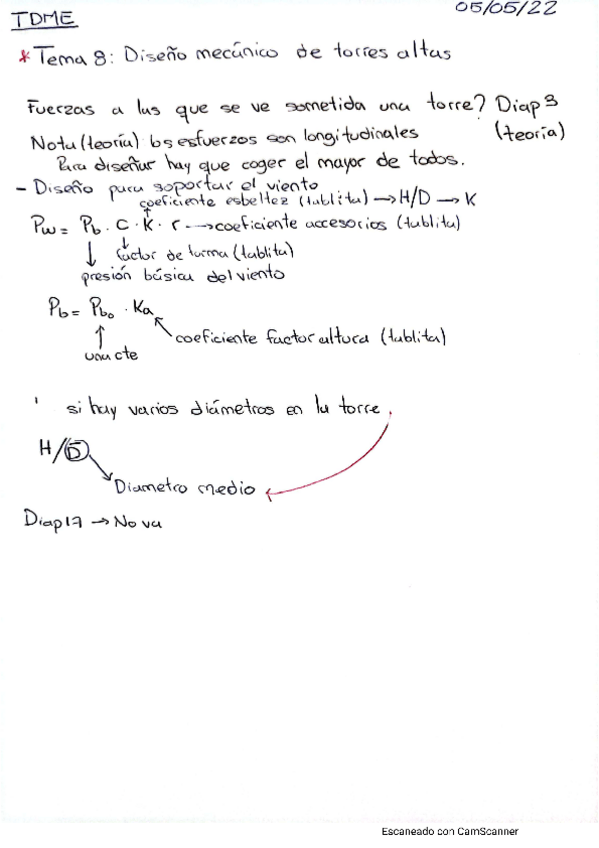 TDME
05/05/22
* Tema 8: Diseño mecánico de torres altas
Fuerzas a las que se ve sometida una torre? Diap 3
(teoría)
Nota (teoría) los esfuerzos son longitudinales
Para diseñar hay que coger el mayor de todos.
- Diseño para soportar el viento
coeficiente esbeltez (tablita) → H/D → K
Pw = Pb · C · K · r → coeficiente accesorios (tablita)
factor de forma (tablita)
presión básica del viento
Pb = Pb₀ · Ka
coeficiente factor altura (tablita)
una cte
si hay varios diámetros en la torre.
H/D
Diametro medio
Diap 17 → No va
Escaneado con CamScanner